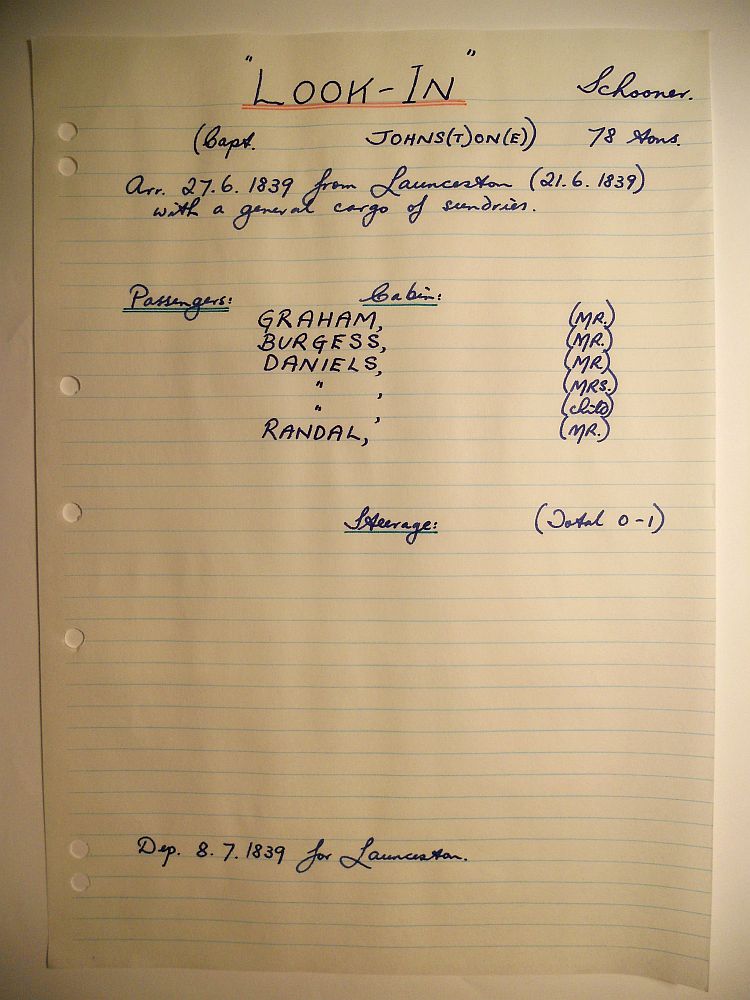 "LOOK-IN" Schooner.
(Capt. JOHNS(T)ON(E)) 78 tons.
Arr. 27.6.1839 from Launceston (21.6.1839)
with a general cargo of sundries.
Passengers: Cabin:
GRAHAM, (MR.)
BURGESS, (MR.)
DANIELS, (MR)
" , (MRS.)
" , (child)
RANDAL, (MR.)
Steerage: (Total 0-1)
Dep. 8.7.1839 for Launceston.